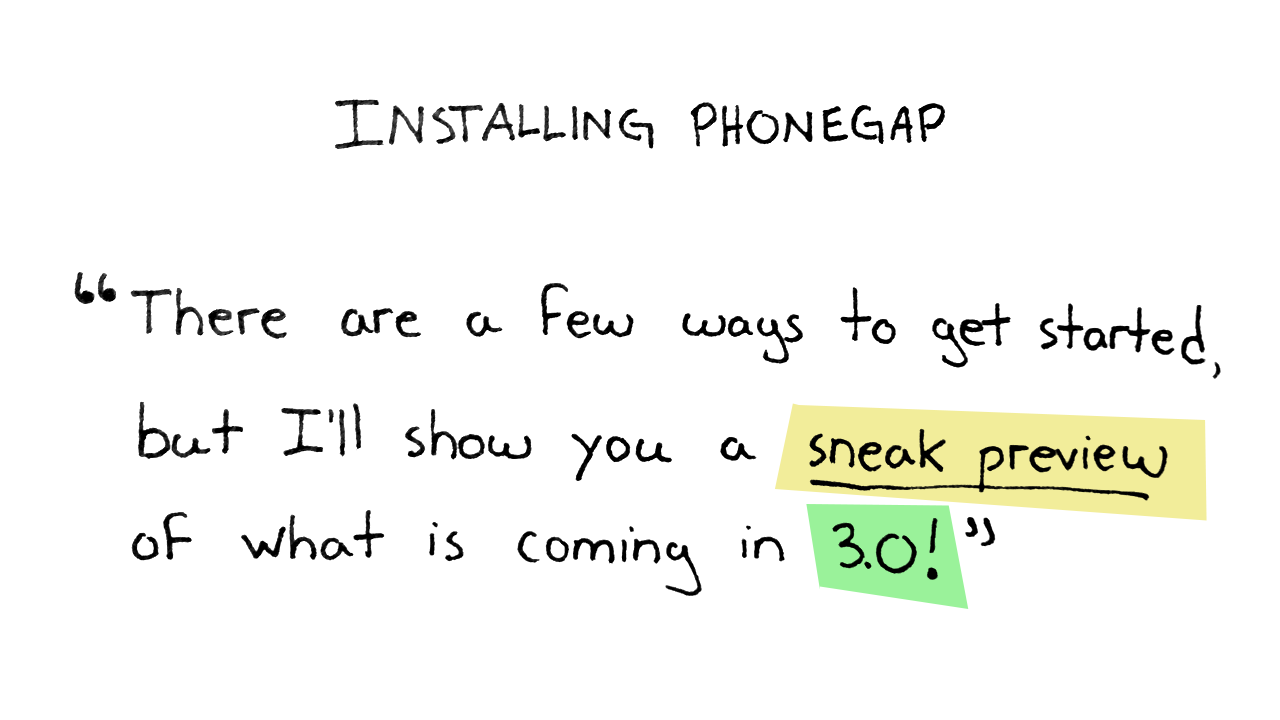 INSTALLING PHONEGAP
“There are a few ways to get started,
but I'll show you a sneak preview
of what is coming in 3.0!”